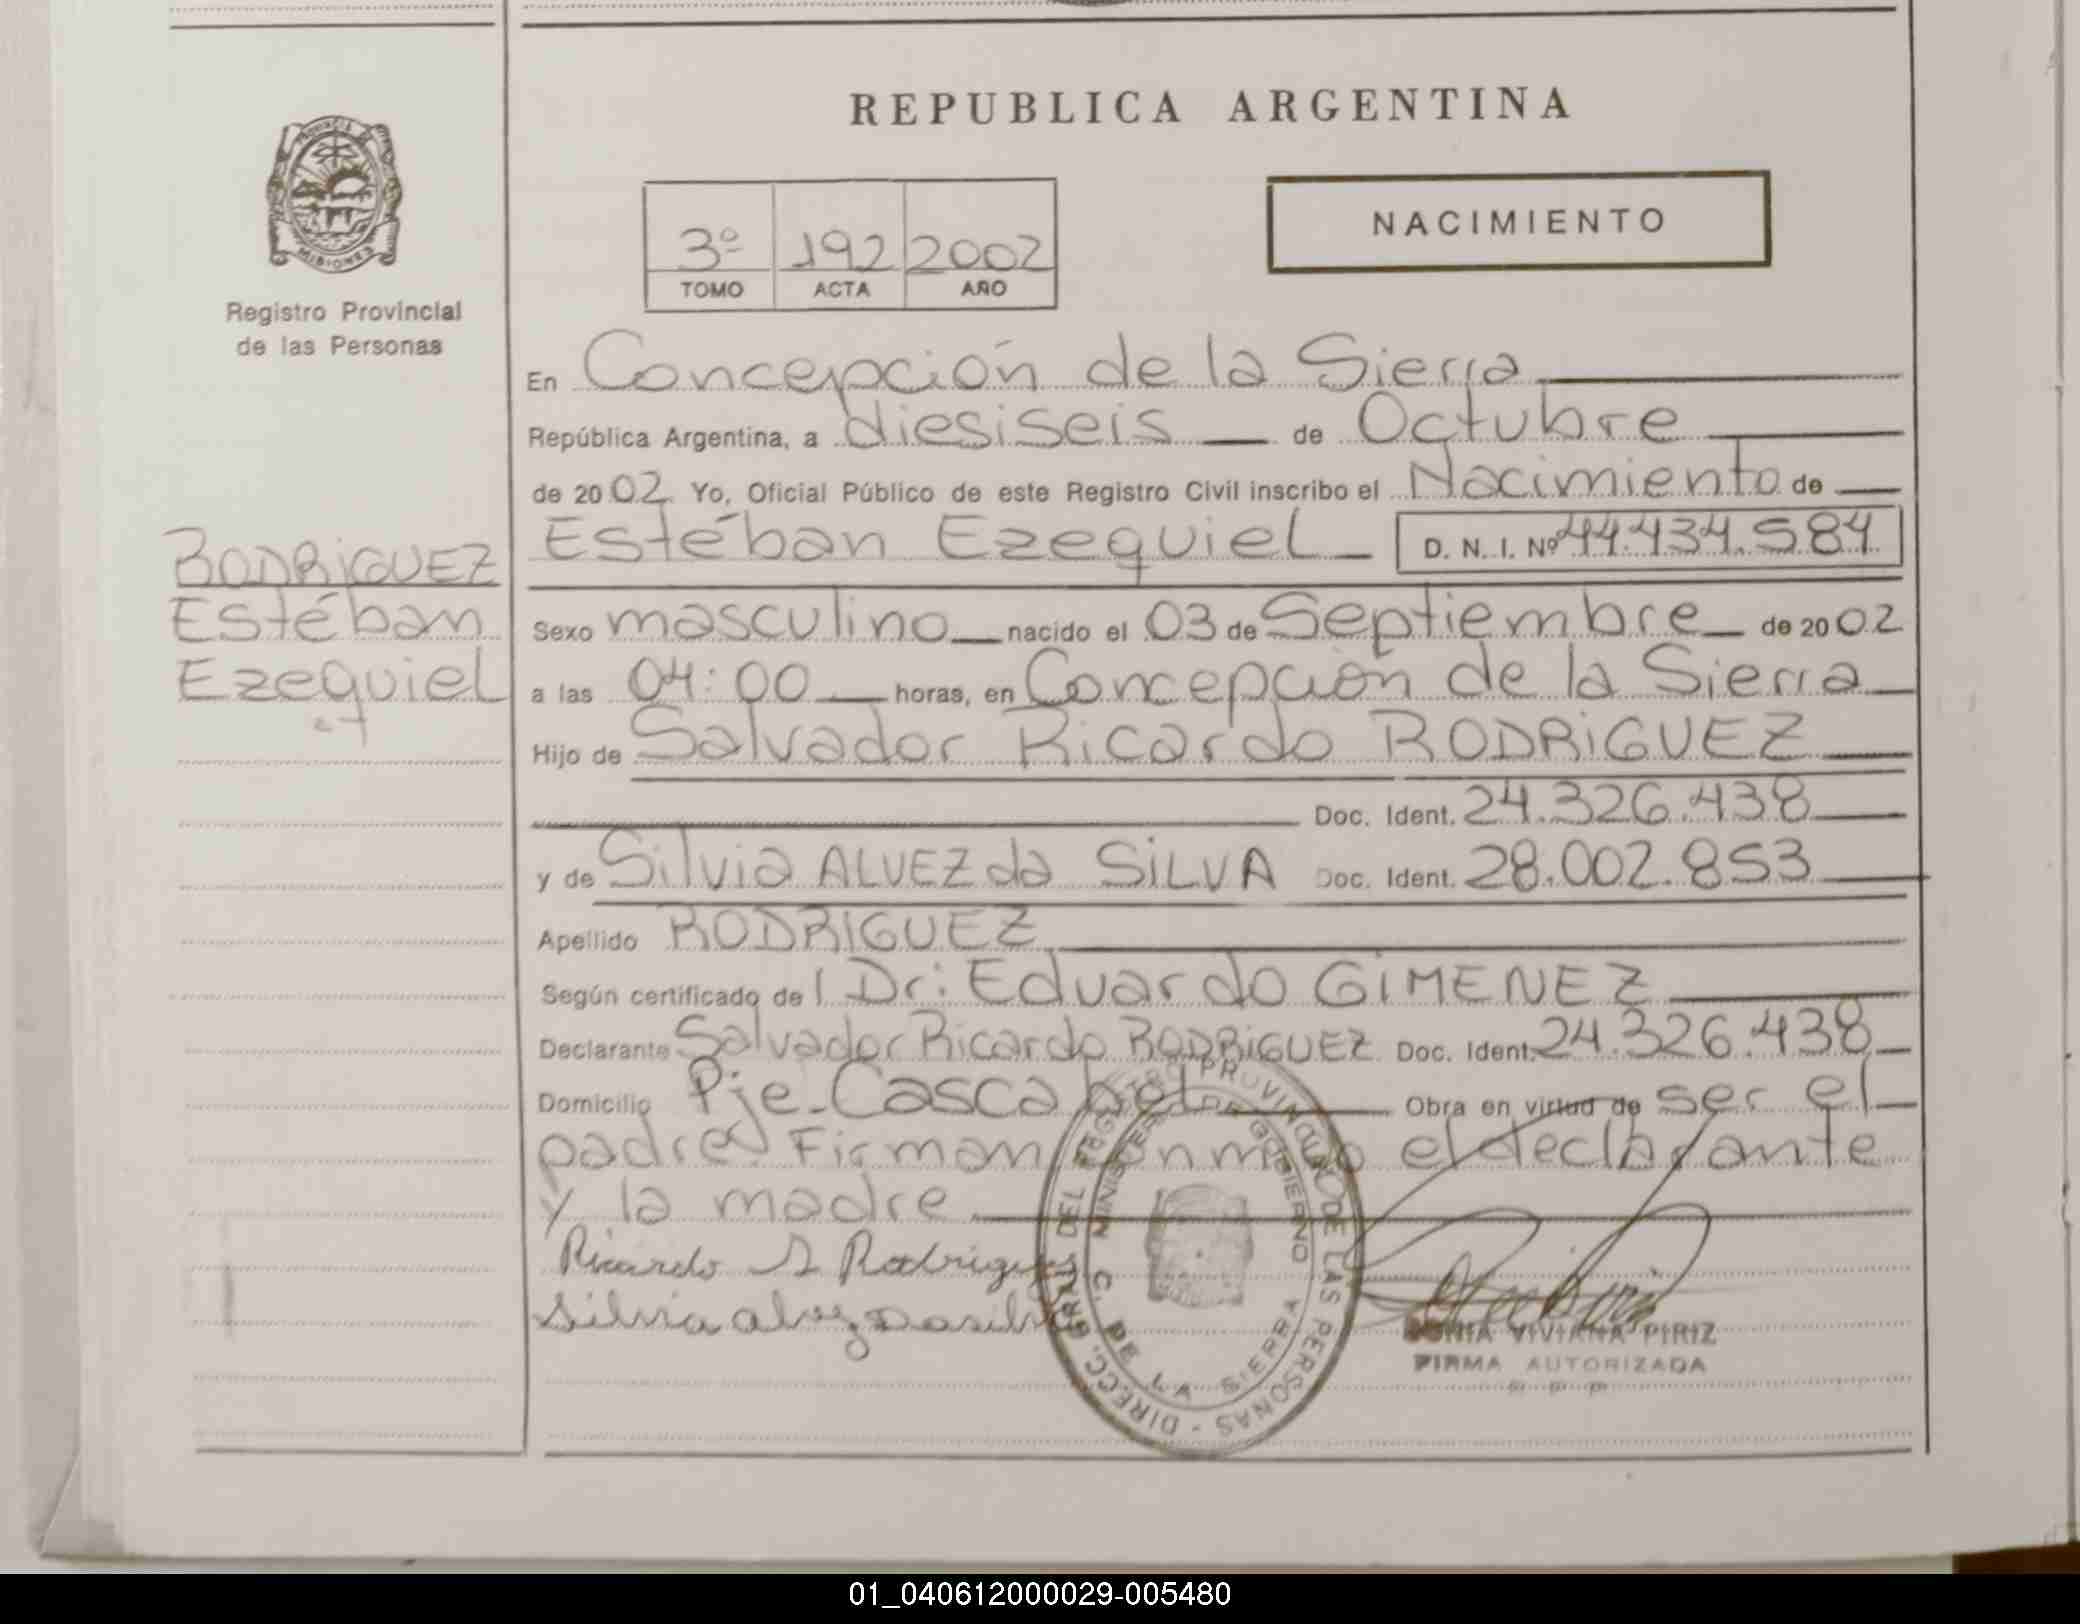 REPUBLICA ARGENTINA
PROVINCIA DE
MISIONES
Registro Provincial
de las Personas
NACIMIENTO
3º 192 2002
TOMO ACTA AÑO
En Concepción de la Sierra
República Argentina, a diesiseis de Octubre
de 2002 Yo, Oficial Público de este Registro Civil inscribo el Nacimiento de
Estéban Ezequiel D. N. I. Nº 44.434.584
RODRiGUEZ
Estéban
Ezequiel
Sexo masculino nacido el 03 de Septiembre de 2002
a las 04:00 horas, en Concepción de la Sierra
Hijo de Salvador Ricardo RODRiGUEZ
Doc. Ident. 24.326.438
y de Silvia ALVEZ da SiLVA Doc. Ident. 28.002.853
Apellido RODRIGUEZ
Según certificado del Dr: Eduardo GiMENEZ
Declarante Salvador Ricardo RODRiGUEZ Doc. Ident. 24.326.438
Domicilio Pje. Cascabel Obra en virtud de ser el
padre. Firman conmigo el declarante
y la madre
Ricardo S Rodriguez
Silvia alvez Dasilva
DIRECC. GRAL. DEL REGISTRO PROVINCIAL DE LAS PERSONAS
MINISTERIO DE GOBIERNO
C. DE LA SIERRA
SONIA VIVIANA PIRIZ
FIRMA AUTORIZADA
01_040612000029-005480